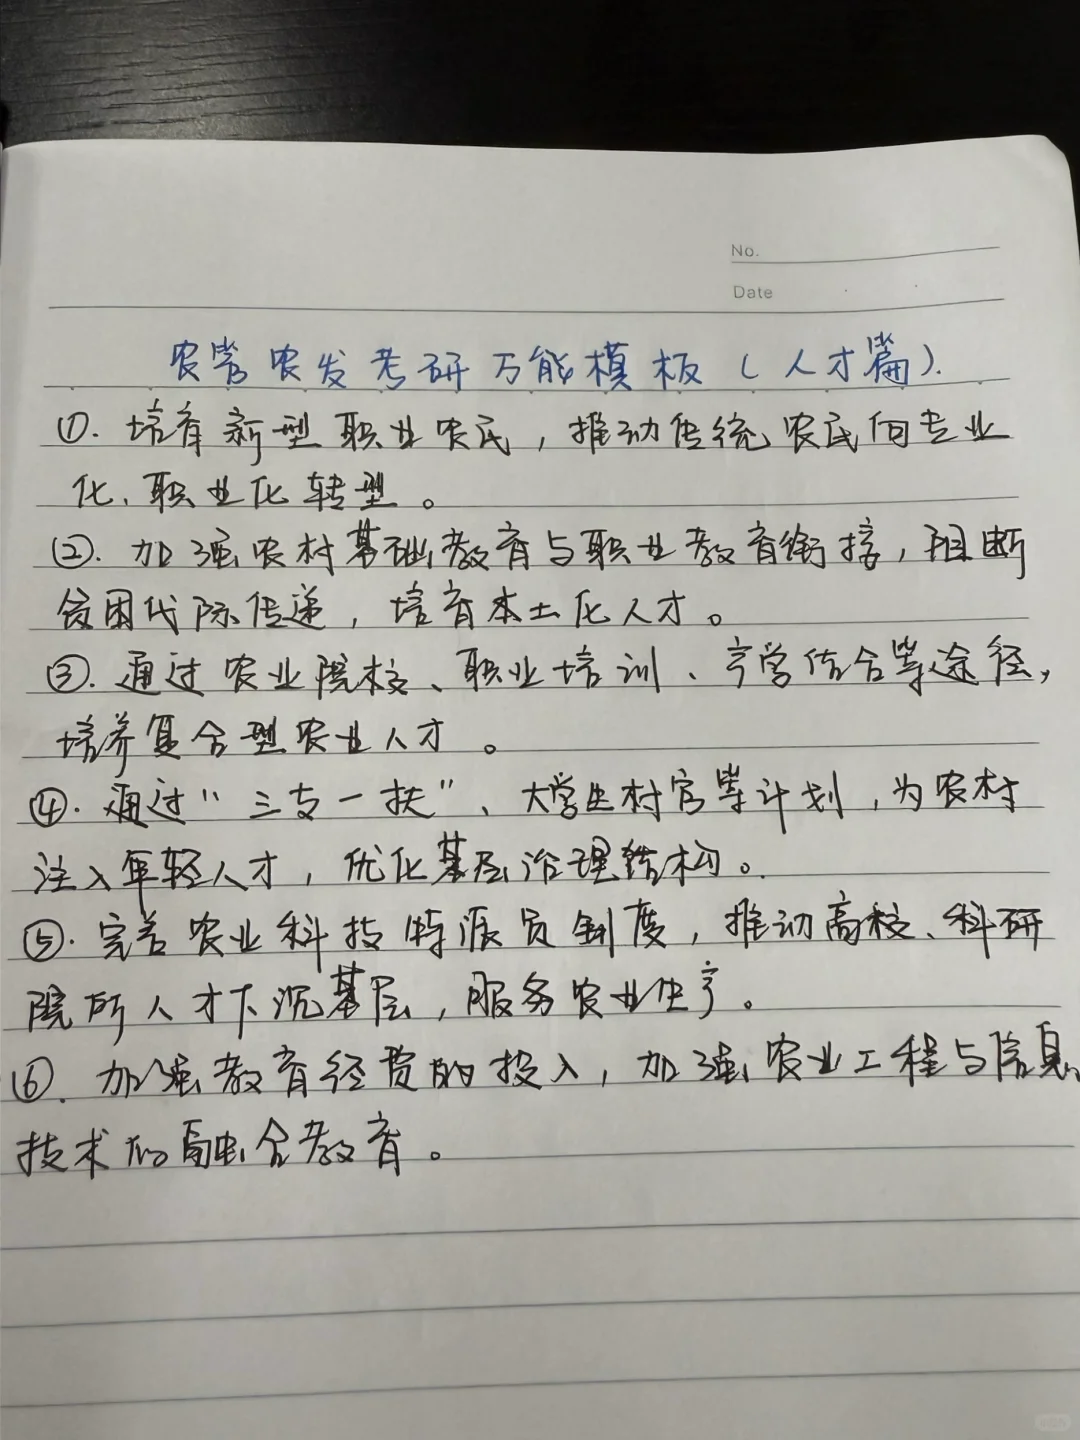 No.
Date
农管农发考研万能模板(人才篇).
①. 培育新型职业农民，推动传统农民向专业
化、职业化转型。
②. 加强农村基础教育与职业教育衔接，阻断
贫困代际传递，培育本土化人才。
③. 通过农业院校、职业培训、产学结合等途径，
培养复合型农业人才。
④. 通过“三支一扶”、大学生村官等计划，为农村
注入年轻人才，优化基层治理结构。
⑤. 完善农业科技特派员制度，推动高校、科研
院所人才下沉基层，服务农业生产。
⑥. 加强教育经费的投入，加强农业工程与信息
技术的融合教育。